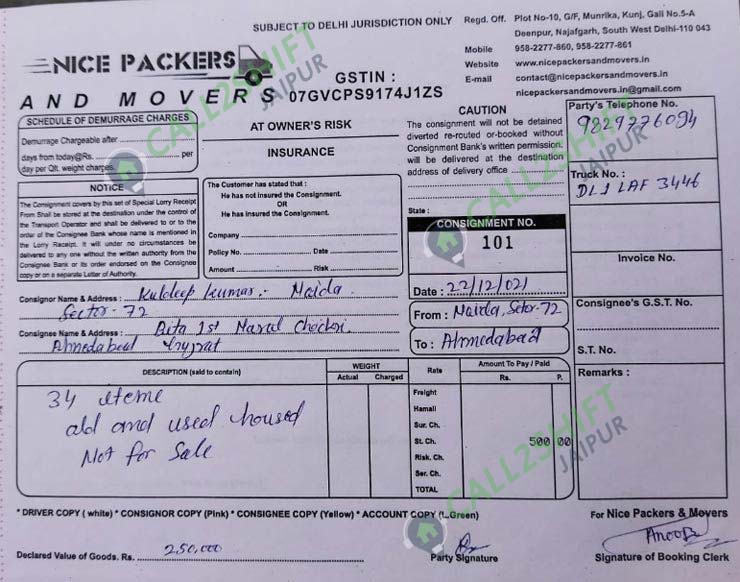 SUBJECT TO DELHI JURISDICTION ONLY
Regd. Off. Plot No-10, G/F, Munrika, Kunj, Gali No.5-A
Deenpur, Najafgarh, South West Delhi-110 043
Mobile 958-2277-860, 958-2277-861
Website www.nicepackersandmovers.in
E-mail contact@nicepackersandmovers.in
nicepackersandmovers@gmail.in
NICE PACKERS
AND MOVERS
GSTIN :
07GVCPS9174J1ZS
SCHEDULE OF DEMURRAGE CHARGES
Demurrage Chargeable after
days from today@Rs. per
day per Qlt. weight charges.
NOTICE
The Consignment covers by this set of Special Lorry Receipt
From Shall be stored at the destination under the control of
the Transport Operator and shall be delivered to or to the
order of the Consignee Bank whose name is mentioned in
the Lorry Receipt. It will under no circumstances be
delivered to any one without the written authority from the
Consignee Bank or its order endorsed on the Consignee
copy or on a separate Letter of Authority.
AT OWNER'S RISK
INSURANCE
The Customer has stated that :
He has not insured the Consignment.
OR
He has insured the Consignment.
Company
Policy No. Date
Amount Risk
CAUTION
The consignment will not be detained
diverted re-routed or-booked without
Consignment Bank's written permission.
will be delivered at the destination
address of delivery office
State :
CONSIGNMENT NO.
101
Date : 22/12/021
From : Noida, Sctor-72
To : Ahmedabad
Party's Telephone No.
9829776094
Truck No. :
DL1 LAF 3446
Invoice No.
Consignee's G.S.T. No.
S.T. No.
Remarks :
Consignor Name & Address : Kuldeep Kumar. Noida
Sector-72
Consignee Name & Address :
Ahmedabad
DESCRIPTION (said to contain)
WEIGHT
Actual Charged
Rate
Amount To Pay / Paid
Rs. P.
34 iteme
old and used housed
Not for Sale
Freight
Hamali
Sur. Ch.
St. Ch. 500 00
Risk. Ch.
Ser. Ch.
TOTAL
* DRIVER COPY ( white) * CONSIGNOR COPY (Pink) * CONSIGNEE COPY (Yellow) * ACCOUNT COPY (L.Green)
For Nice Packers & Movers
Declared Value of Goods. Rs. 250,000
Party Signature
Signature of Booking Clerk
CALL2SHIFT
JAIPUR
CALL2SHIFT
JAIPUR
CALL2SHIFT
JAIPUR